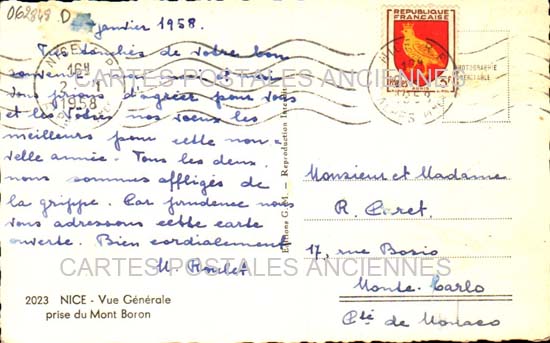 062848 D
janvier 1958.
Très touchés de votre bon
souvenir
vous prions d'agréer pour vous
et les vôtres nos vœux les
meilleurs pour cette nou-
velle année. Tous les deux
nous sommes affligés de
la grippe. Par prudence nous
vous adressons cette carte
ouverte. Bien cordialement
2023 NICE - Vue Générale
prise du Mont Boron
Editions G.M. — Reproduction Interdite
NICE
16H
2 - 1
1958
REPUBLIQUE
FRANÇAISE
PHOTOGRAPHIE
VERITABLE
Monsieur et Madame
R.
17, rue Bosio
Monte-Carlo
Pté de Monaco
CARTES POSTALES ANCIENNES
CARTES POSTALES ANCIENNES